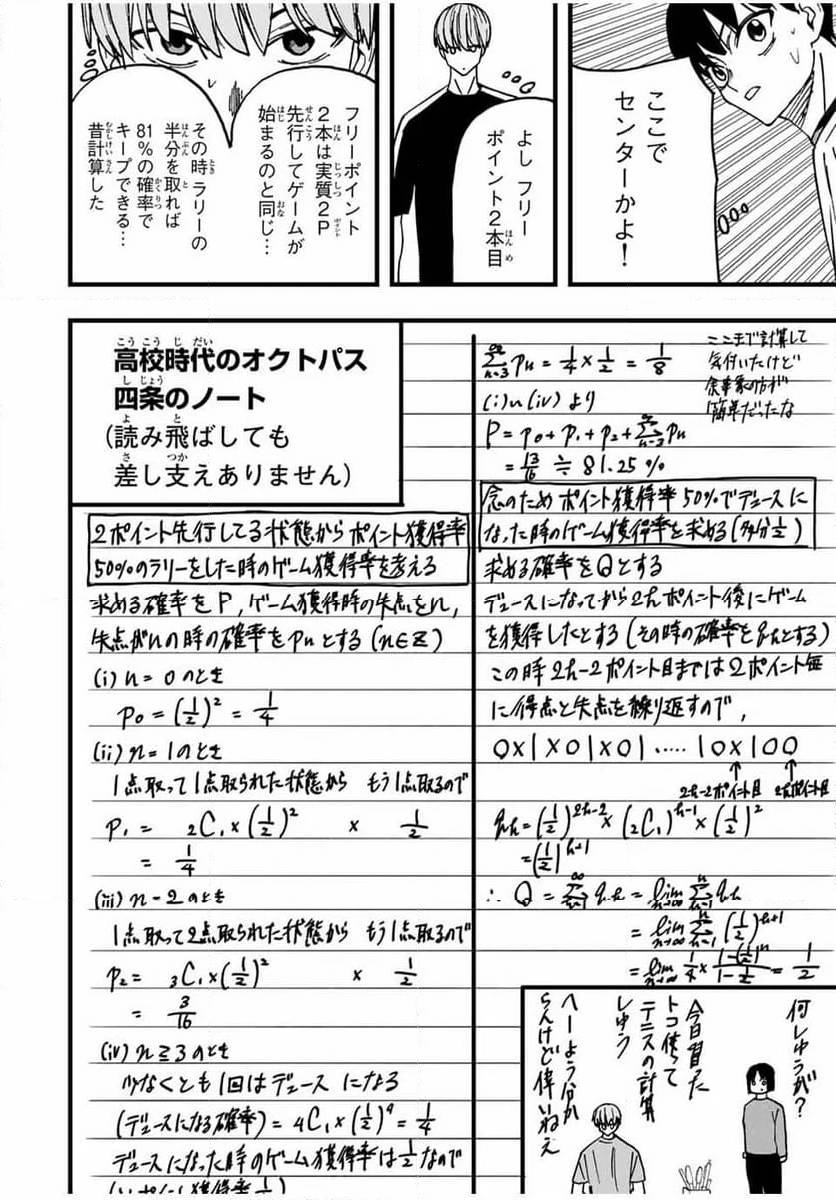 ここで
センターかよ！
よし フリー
ポイント2本目
フリーポイント
2本は実質2P
先行してゲームが
始まるのと同じ…
その時 ラリーの
半分を取れば
81%の確率で
キープできる…
昔計算した
高校時代のオクトパス
四条のノート
(読み飛ばしても
差し支えありません)
2ポイント先行してる状態からポイント獲得率
50%のラリーをした時のゲーム獲得率を考える
求める確率をP, ゲーム獲得時の失点をn,
失点がnの時の確率をpnとする (n∈Z)
(i) n = 0 のとき
p₀ = (1/2)² = 1/4
(ii) n = 1 のとき
1点取って1点取られた状態から もう1点取るので
p₁ = ₂C₁ × (1/2)² × 1/2
= 1/4
(iii) n - 2 のとき
1点取って2点取られた状態から もう1点取るので
p₂ = ₃C₁ × (1/2)² × 1/2
= 3/16
(iv) n ≧ 3 のとき
少なくとも1回はデュースになる
(デュースになる確率) = ₄C₁ × (1/2)⁴ = 1/4
デュースになった時のゲーム獲得率は1/2なので
∞Σn=3 pn = 1/4 × 1/2 = 1/8
(i)〜(iv) より
P = p₀ + p₁ + p₂ + ∞Σn=3 pn
= 13/16 ≒ 81.25 %
ここまで計算して
気付いたけど
余事象の方が
簡単だったな
念のため ポイント獲得率50%でデュースに
なった時のゲーム獲得率を求める (多分1/2)
求める確率をQとする
デュースになってから2kポイント後にゲーム
を獲得したとする (その時の確率をqkとする)
この時 2k-2ポイント目までは2ポイント毎
に得点と失点を繰り返すので,
0×1×01×01 ..... 10×100
2k-2ポイント目 2kポイント目
qk = (1/2)²ᵏ⁻² × (₂C₁)ᵏ⁻¹ × (1/2)²
= (1/2)ᵏ⁺¹
∴ Q = ∞Σk=1 qk = lim n→∞ nΣk=1 qk
= lim n→∞ nΣk=1 (1/2)ᵏ⁺¹
= lim n→∞ 1/4 × (1-(1/2)ⁿ)/(1-1/2) = 1/2
何しゅうが?
今日習った
トコ使って
テニスの計算
しゅう
へーよう分か
らんけど偉いねえ